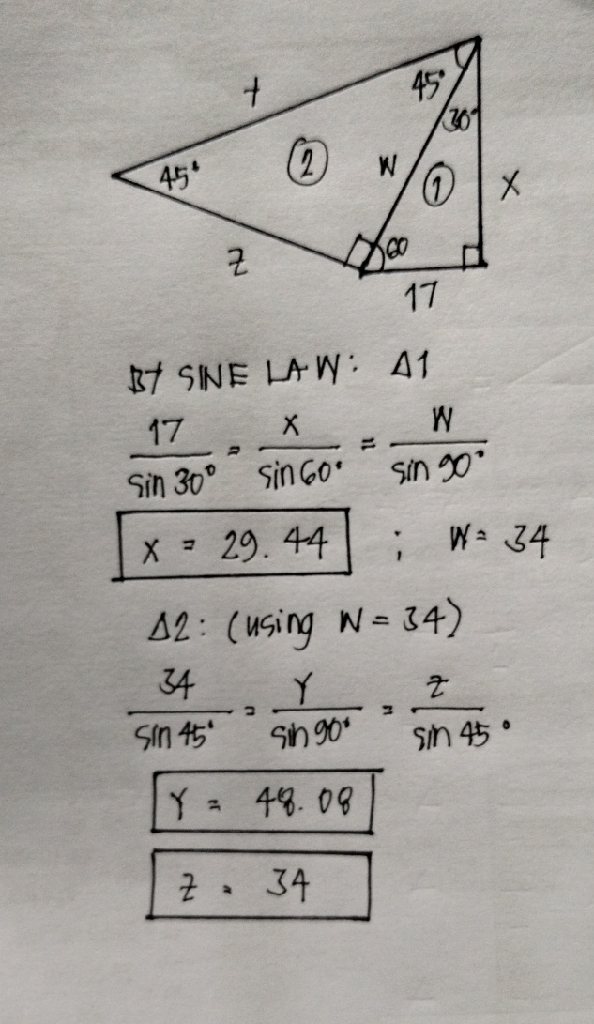 Y
45°
30°
45°
②
W
①
X
60
Z
17
BY SINE LAW: Δ1
17/sin 30° = X/sin 60° = W/sin 90°
X = 29.44 ; W = 34
Δ2: (using W = 34)
34/sin 45° = Y/sin 90° = Z/sin 45°
Y = 48.08
Z = 34